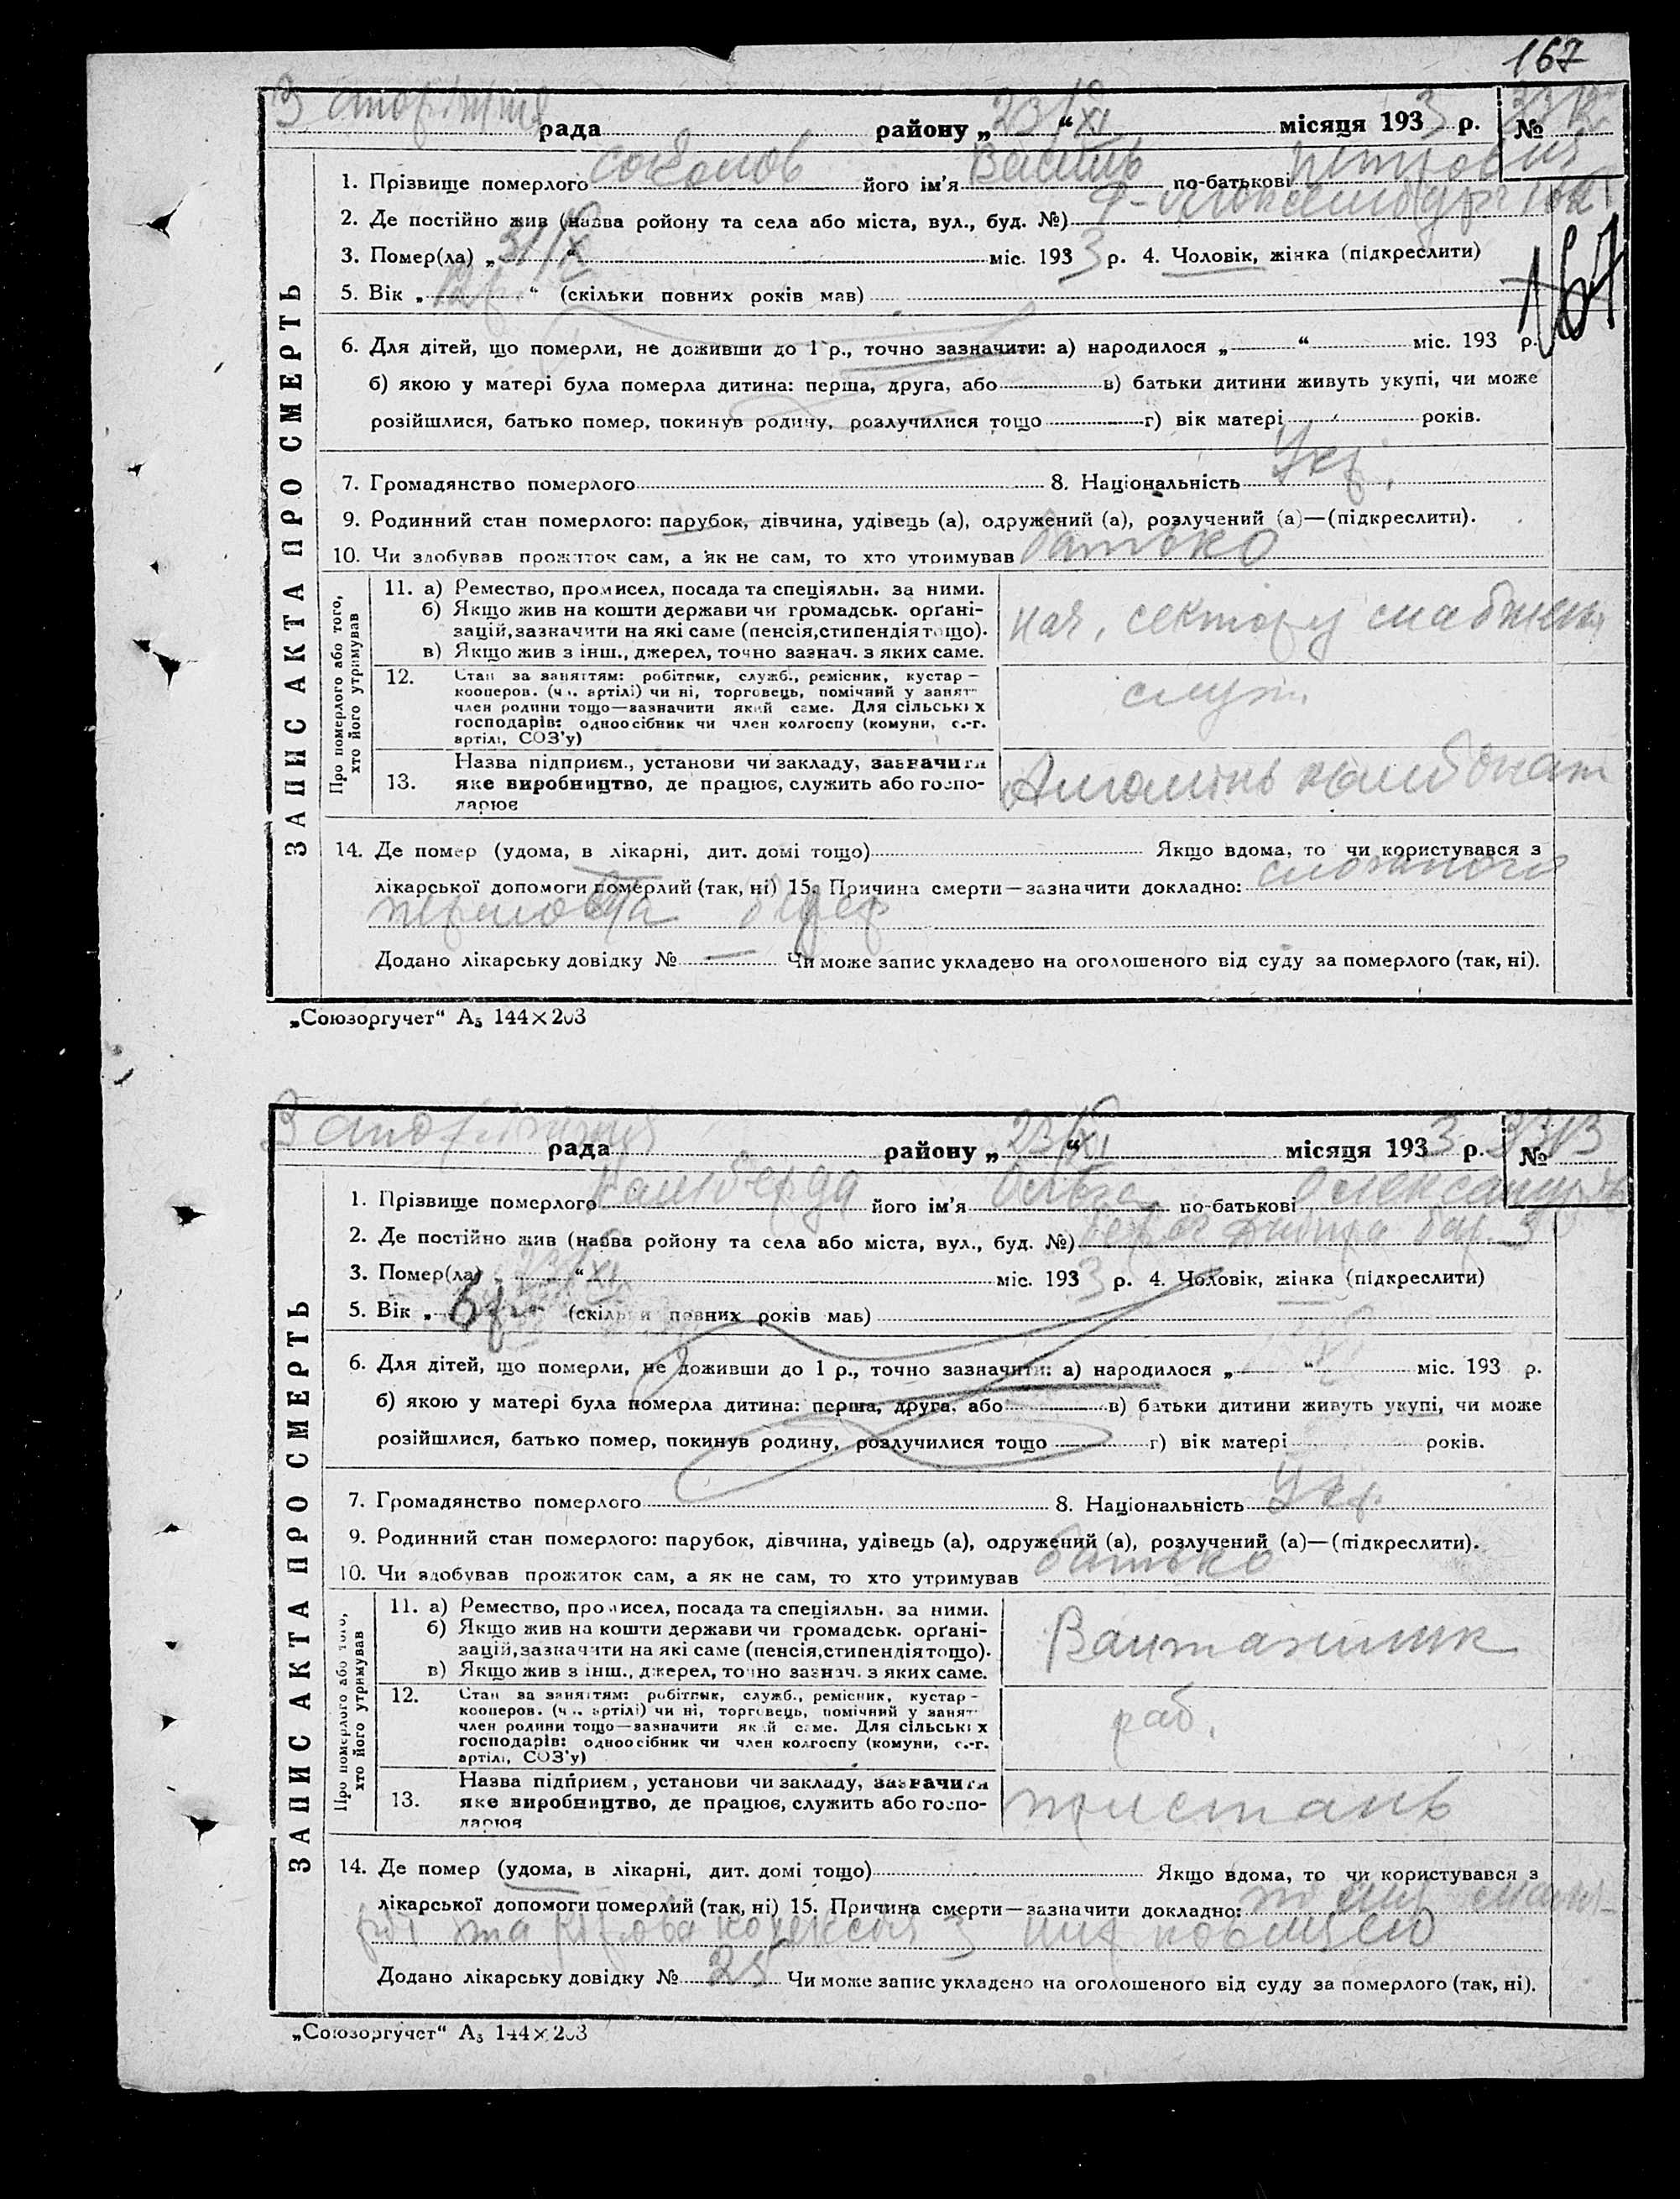 167
Запоріжжя рада району „23/XI“ місяця 1933 р. № 3312
ЗАПИС АКТА ПРО СМЕРТЬ
1. Прізвище померлого Соколов його ім'я Василь по-батькові Петрович
2. Де постійно жив (назва ройону та села або міста, вул., буд. №)
167
3. Помер(ла) „ “ міс. 1933 р. 4. Чоловік, жінка (підкреслити)
5. Вік „12 р.“ (скільки повних років мав)
6. Для дітей, що померли, не доживши до 1 р., точно зазначити: а) народилося „ “ міс. 193 р.
б) якою у матері була померла дитина: перша, друга, або в) батьки дитини живуть укупі, чи може
розійшлися, батько помер, покинув родину, розлучилися тощо г) вік матері років.
7. Громадянство померлого 8. Національність Укр.
9. Родинний стан померлого: парубок, дівчина, удівець (а), одружений (а), розлучений (а)—(підкреслити).
10. Чи здобував прожиток сам, а як не сам, то хто утримував батько
Про померлого або того, хто його утримував
11. а) Ремество, промисел, посада та спеціяльн. за ними.
б) Якщо жив на кошти держави чи громадськ. орґані-
зацій, зазначити на які саме (пенсія, стипендія тощо).
в) Якщо жив з інш., джерел, точно зазнач. з яких саме.
нач. сектору
12. Стан за заняттям: робітник, служб., ремісник, кустар—
кооперов. (чл. артілі) чи ні, торговець, помічний у занят
член родини тощо—зазначити який саме. Для сільських
господарів: одноосібник чи член колгоспу (комуни, с.-г.
артілі, СОЗ'у)
служ.
13. Назва підприєм., установи чи закладу, зазначити
яке виробництво, де працює, служить або госпо-
дарює
комбінат
14. Де помер (удома, в лікарні, дит. домі тощо) Якщо вдома, то чи користувався з
лікарської допомоги померлий (так, ні) 15. Причина смерти—зазначити докладно:
Додано лікарську довідку № — Чи може запис укладено на оголошеного від суду за померлого (так, ні).
„Союзоргучет“ А₅ 144×203
Запоріжжя рада району „23/XI“ місяця 1933 р. № 3313
ЗАПИС АКТА ПРО СМЕРТЬ
1. Прізвище померлого Камберда його ім'я Ольга по-батькові Олександр.
2. Де постійно жив (назва ройону та села або міста, вул., буд. №) берег Дніпра бар. 3
3. Помер(ла) „23/XI“ міс. 1933 р. 4. Чоловік, жінка (підкреслити)
5. Вік „6 р.“ (скільки повних років мав)
6. Для дітей, що померли, не доживши до 1 р., точно зазначити: а) народилося „ “ міс. 193 р.
б) якою у матері була померла дитина: перша, друга, або в) батьки дитини живуть укупі, чи може
розійшлися, батько помер, покинув родину, розлучилися тощо г) вік матері років.
7. Громадянство померлого 8. Національність Укр.
9. Родинний стан померлого: парубок, дівчина, удівець (а), одружений (а), розлучений (а)—(підкреслити).
10. Чи здобував прожиток сам, а як не сам, то хто утримував батько
Про померлого або того, хто його утримував
11. а) Ремество, промисел, посада та спеціяльн. за ними.
б) Якщо жив на кошти держави чи громадськ. орґані-
зацій, зазначити на які саме (пенсія, стипендія тощо).
в) Якщо жив з інш., джерел, точно зазнач. з яких саме.
Вантажник
12. Стан за заняттям: робітник, служб., ремісник, кустар—
кооперов. (чл. артілі) чи ні, торговець, помічний у занят
член родини тощо—зазначити який саме. Для сільських
господарів: одноосібник чи член колгоспу (комуни, с.-г.
артілі, СОЗ'у)
раб.
13. Назва підприєм., установи чи закладу, зазначити
яке виробництво, де працює, служить або госпо-
дарює
пристань
14. Де помер (удома, в лікарні, дит. домі тощо) Якщо вдома, то чи користувався з
лікарської допомоги померлий (так, ні) 15. Причина смерти—зазначити докладно:
Додано лікарську довідку № 25 Чи може запис укладено на оголошеного від суду за померлого (так, ні).
„Союзоргучет“ А₅ 144×203